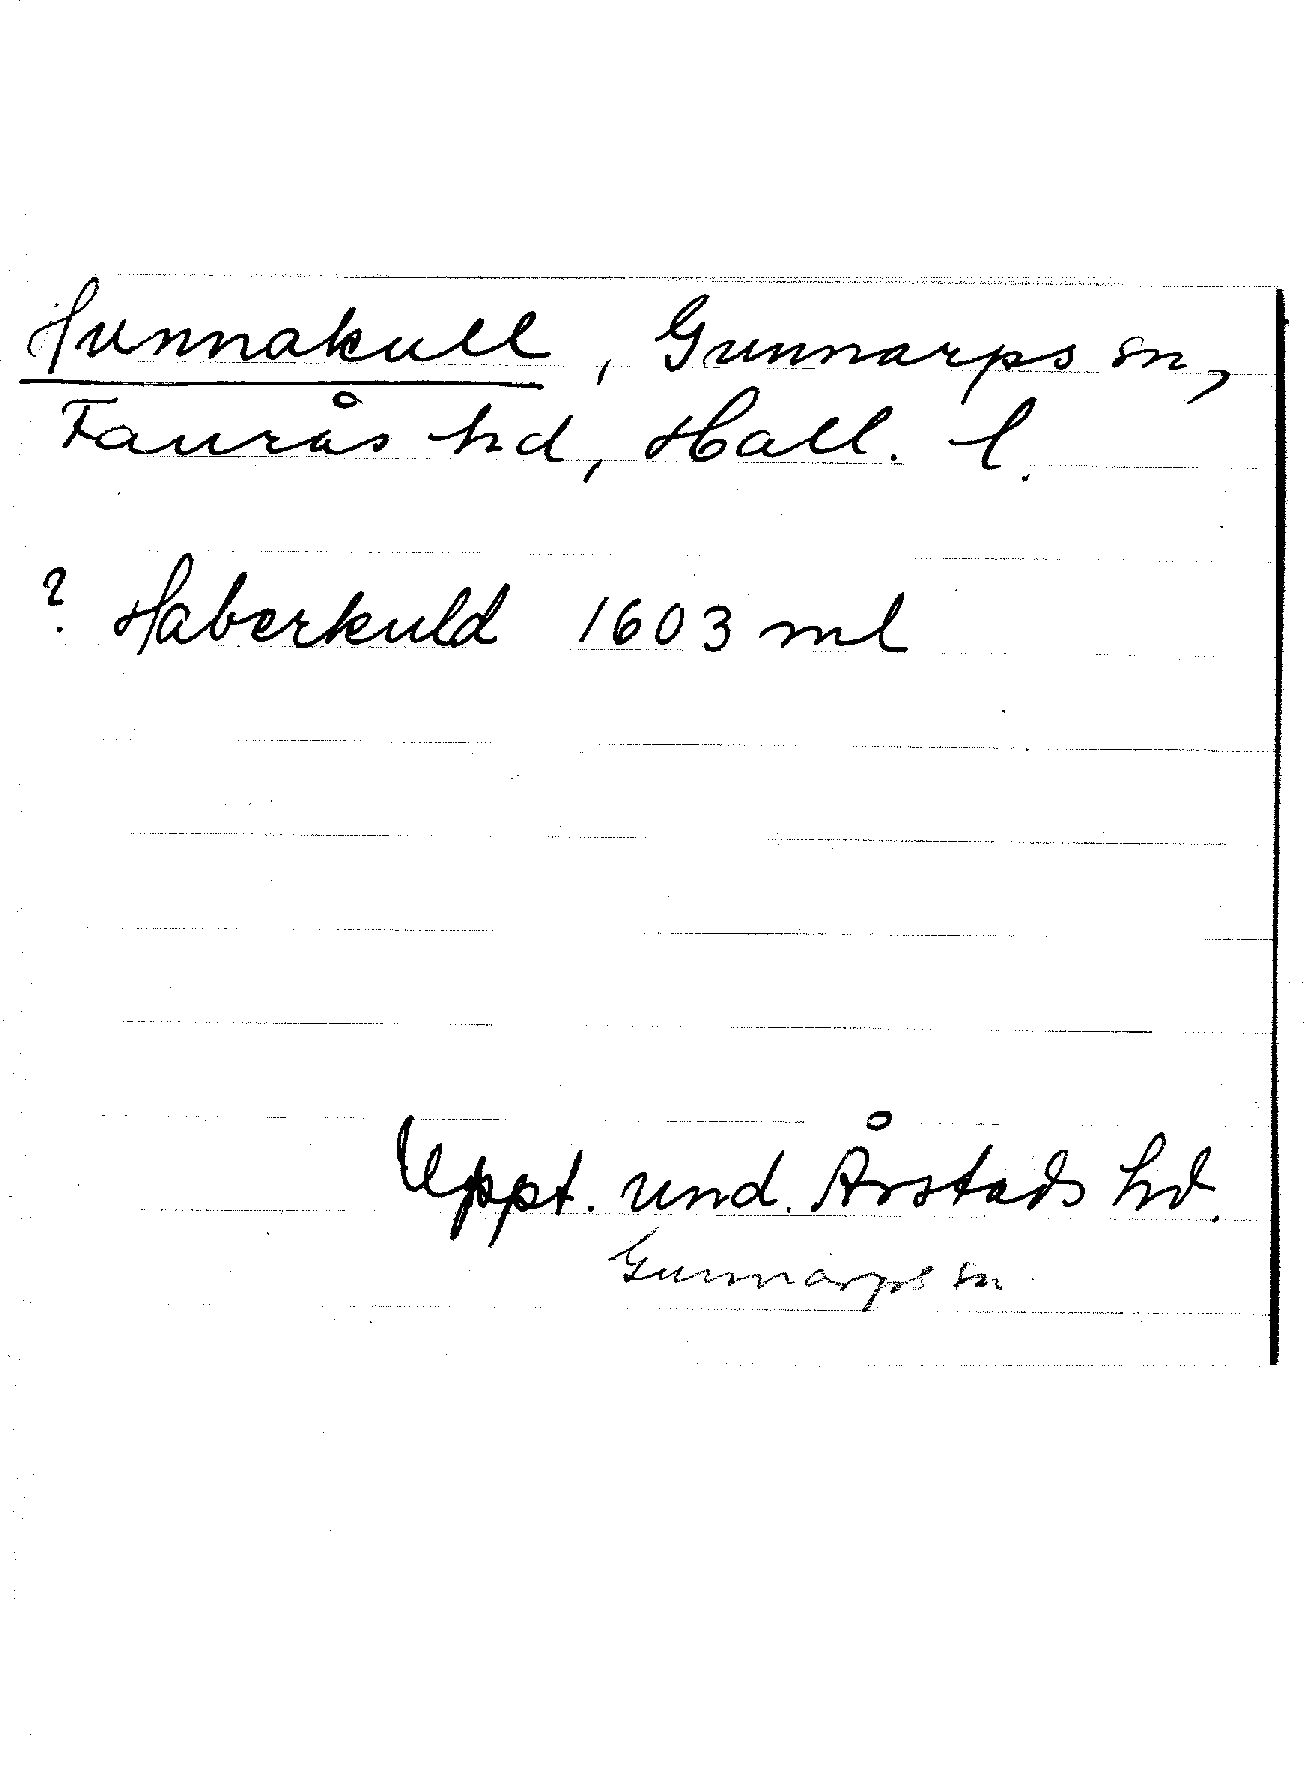 Hunnakull, Gunnarps sn,
Faurås hd, Hall. l.
? Haberkuld 1603 ml
Uppt. und. Årstads hd.
Gunnarps sn